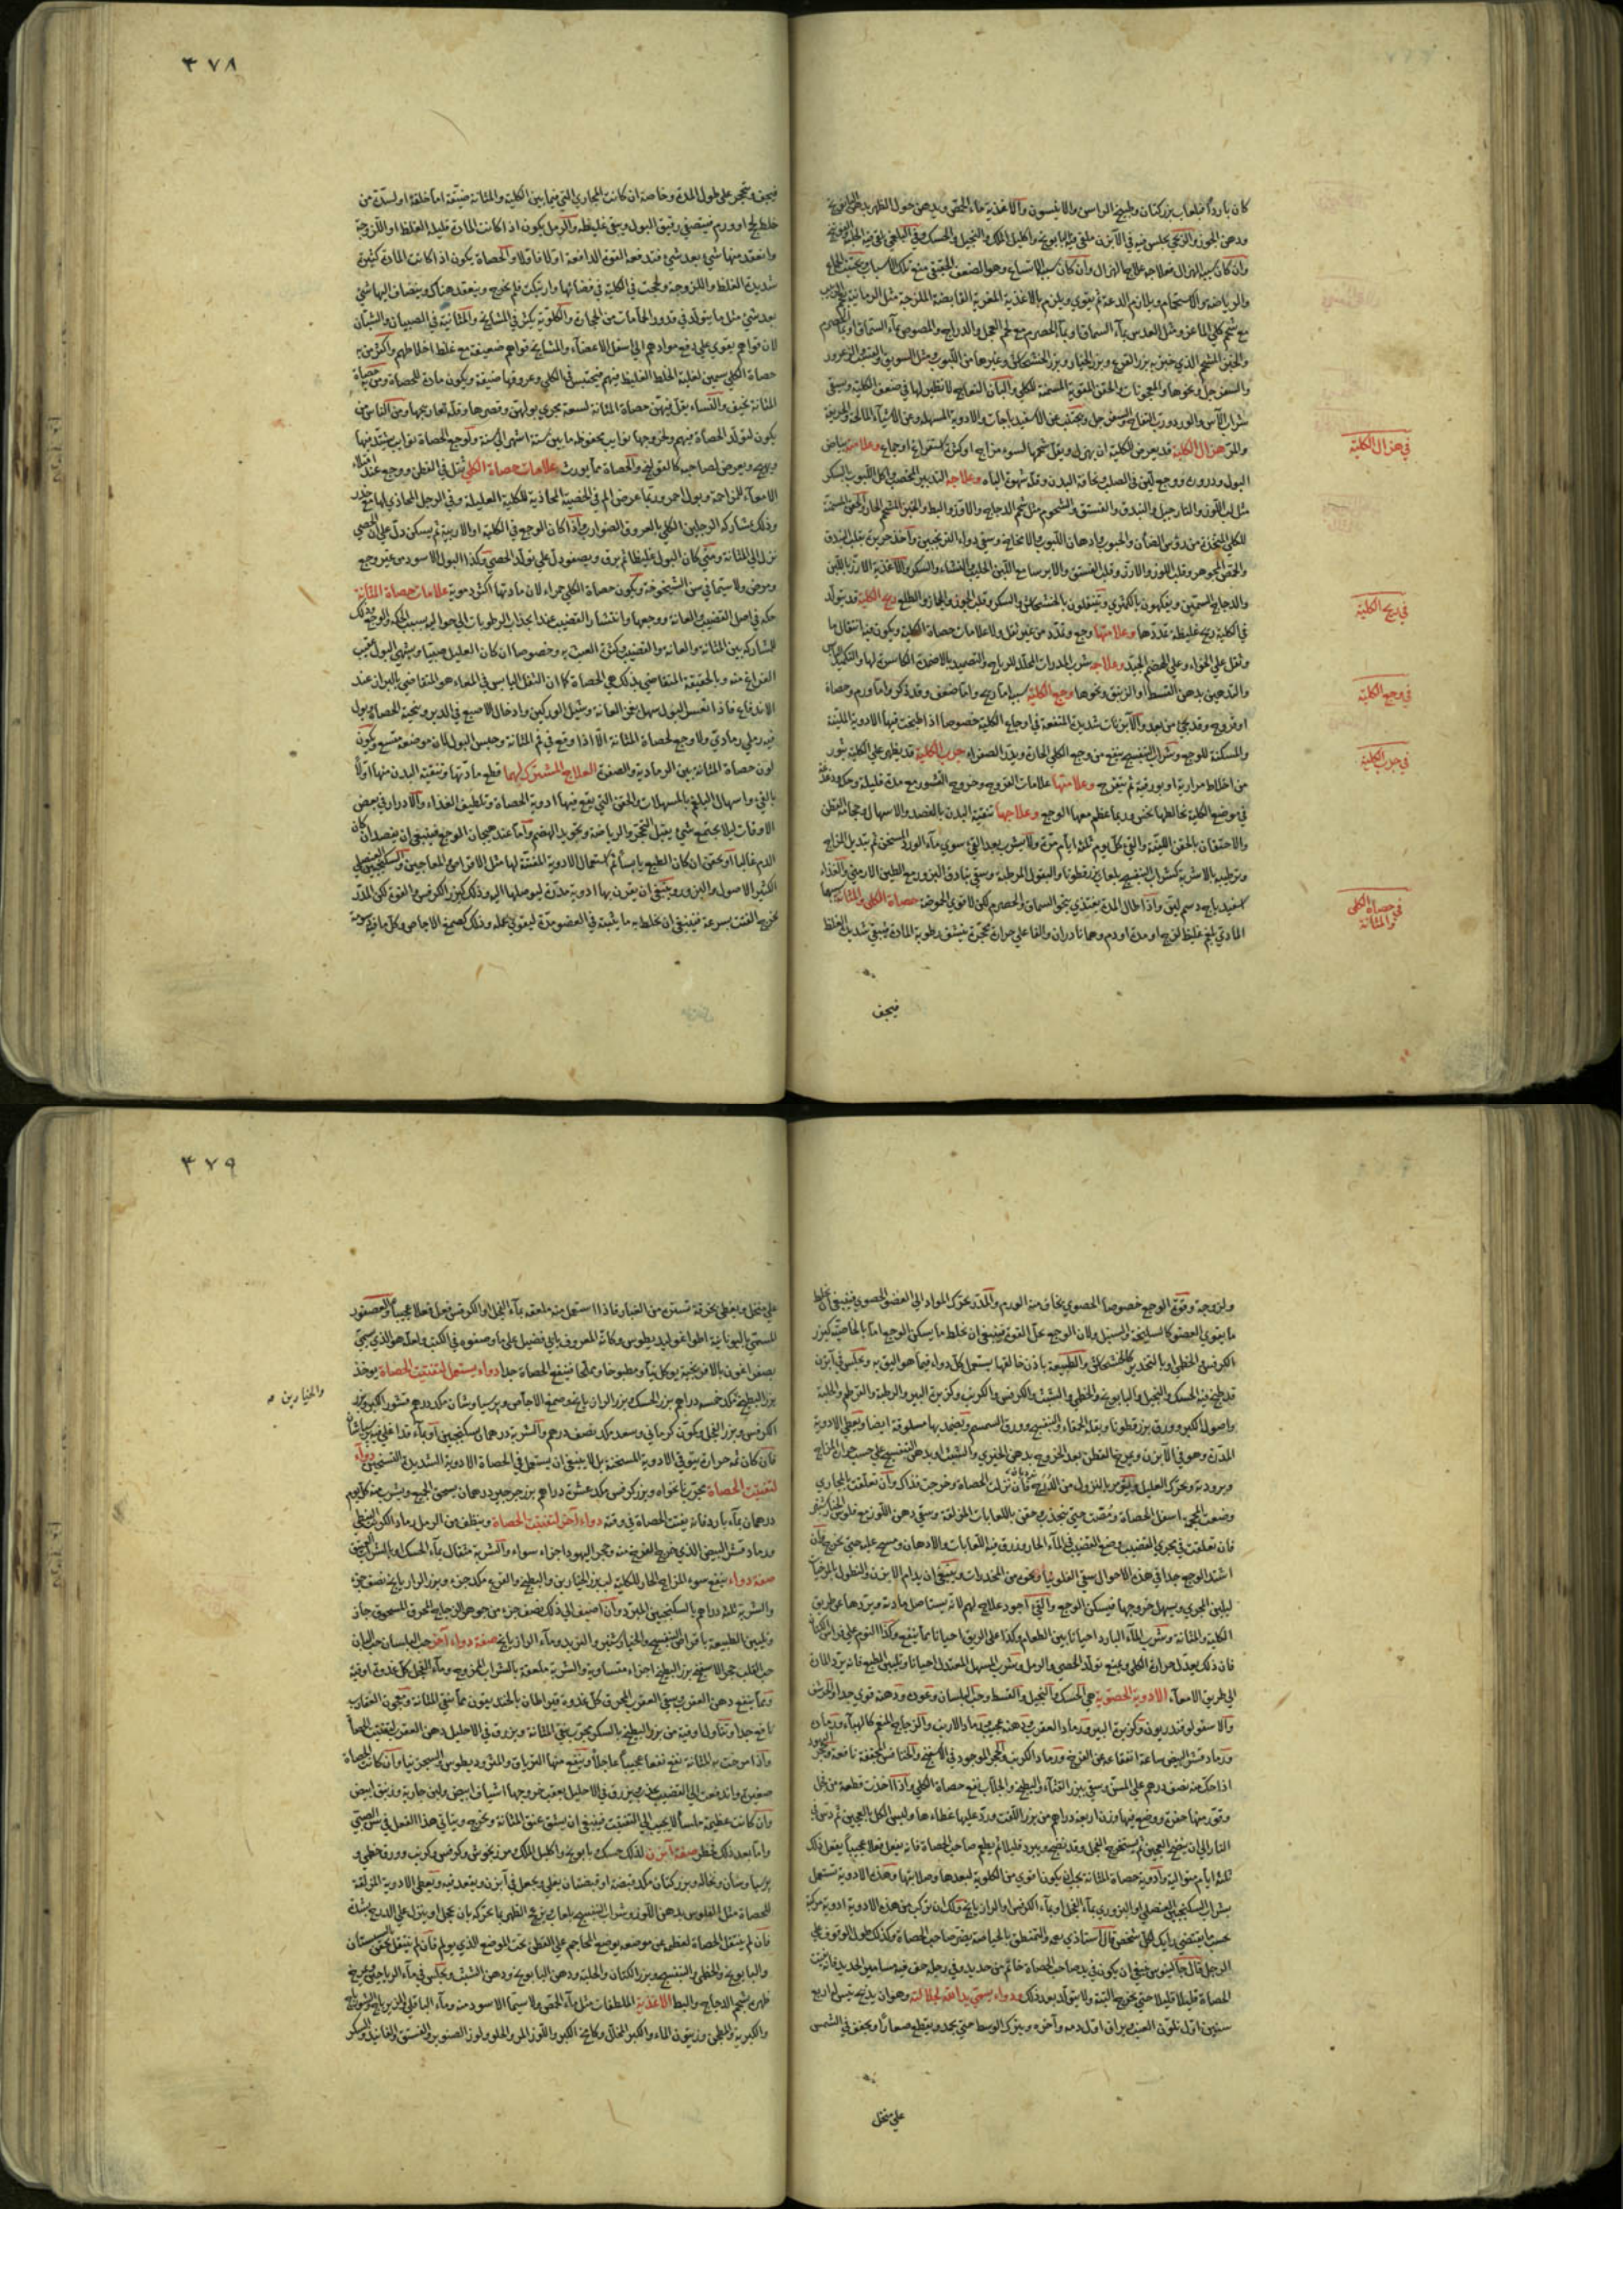 كان بارداً فبلعاب بزر كتان وطبيخ الراسن والانيسون والاغذية ماء الحمص وبدهن حول الظهر بدهن
ودهن الجوز والزنبق يجلس فيه في الآبزن
وان كان سببه الهزال فعلاجه علاج الهزال وان كان سببه الاتساع وهو الضعف الحقيقي منع تلك الاسباب
والرياضة والاستحمام ويلازم الدعة ثم يقوي ويلزم بالاغذية المقوية القابضة اللزجة مثل الرمانية
مع شحم كلي الماعز ومثل العدس بماء السماق او بماء الحصرم مع لحم العجل والدراج والمصوص بماء السماق
والسفرجل ونحوها والمعجونات والحقن المقوية المسمنة للكلي والبان النعاج لا نظير لها في ضعف الكلية ويسقي
شراب الآس والورد ورب التفاح والسفرجل ويجتنب عن الاسفيدباجات والادوية المسهلة وعن الاشياء المالحة والحريفة
والمرة هزال الكلية قد يعرض للكلية ان يهزل ويقل شحمها لسوء مزاج او كثرة استفراغ او جماع وعلامته بياض
البول ودروره ووجع لين في الصلب نحافة البدن وقلة شهوة الباه وعلاجه التدبير المخصب واكل اللبوب بالسكر
مثل لب اللوز والنارجيل والبندق والفستق والشحوم مثل شحم الدجاج والاوز والبط والخبز المشحم الحار والحقن المسمنة
والدجاج المسمن ريح الكلية قد يتولد
في الكلية ريح غليظة تمددها وعلامتها وجع وتمدد من غير ثقل ولا علامات حصاة الكلية ويكون فيه انتقال ما
وثقل علي الخواء وعلي الهضم الجيد وعلاجه شرب المدرات المحللة للرياح والتضميد بالاضمدة الكاسرة لها والتكميد
والتدهين بدهن القسط او الزنبق ونحوها وجع الكلية سببه اما ريح واما ضعف وقد ذكر واما ورم وحصاة
او قروح وقد يجئ من بعد والآبزنات شديدة المنفعة في اوجاع الكلية خصوصا اذا طبخت فيها الادوية الملينة
والمسكنة للوجع وشراب البنفسج ينفع من وجع الكلي الحار ويدر الصفراء جرب الكلية قد يظهر علي الكلية بثور
من اخلاط مرارية او بورقية ثم يتقرح وعلامتها علامات القروح وخروج القشور مع مدة قليلة وحكة ودغدغة
في موضع الكلية يخالطها نخس وربما عظم معها الوجع وعلاجها تنقية البدن بالفصد والاسهال وحجامة القطن
والاحتقان بالحقن اللينة والقئ كل يوم ثلثة ايام مرة ولا يشرب بعد القئ سوي ماء الورد المسخن ثم تبديل المزاج
وترطيبه بالاشربة كشراب البنفسج بلعاب بزر قطونا والبقول المرطبة وسقي بنادق البزور مع الطين الارمني والغذاء
اسفيدباج دسم ليق واذا طال المدة يغتذي بنحو السماق والحصرم لكن لا قوي الحموضة حصاة الكلي والمثانة سببها
المادي بلغم غليظ لزج او مدة او دم وهما نادران والفاعلي حرارة محجرة ينشف رطوبة المادة فيبقي شديد الغلظ
فيجف
في هزال الكلية
في ريح الكلية
في وجع الكلية
في جرب الكلية
في حصاة الكلي
والمثانة
٣٧٨
فيجف ويتحجر علي طول المدة وخاصة ان كانت المجاري التي فيما بين الكلية والمثانة ضيقة اما خلقة او لسدة من
خلط لحج او ورم فيتصفي رقيق البول ويبقي غليظه والرمل يكون اذا كانت المادة قليلة الغلظ او اللزوجة
وانعقد منها شئ بعد شئ فتدفعه القوة الدافعة اولا فاولا والحصاة يكون اذا كانت المادة كثيرة
شديدة الغلظ واللزوجة ولحجت في الكلية في فضائها وارتبكت فلم يخرج وينعقد هناك وينضاف اليها شئ
بعد شئ مثل ما يتولد في قدور الحمامات من الحجارة والكلوية يكثر في المشايخ والمثانية في الصبيان والشبان
لان قواهم يقوي علي دفع موادهم الي اسفل الاعضاء والمشايخ قواهم ضعيفة مع غلظ اخلاطهم واكثر من به
حصاة الكلي سمين لغلبة الخلط الغليظ فيهم فيحتبس في الكلي وعروقها ضيقة ويكون مادة للحصاة ومن به حصاة
المثانة نحيف والنساء يقل فيهن حصاة المثانة لسعة مجري بولهن وقصرها وقلة تعاريجها ومن الناس من
يكون لتولد الحصاة فيهم ولخروجها نوايب محفوظة ما بين ستة اشهر الي سنة ولوجع الحصاة نوايب يشتد فيها
ويهيج ويعرض لصاحبه كالقولنج والحصاة مما يورث علامات حصاة الكلي ثقل في القطن ووجع عند امتلاء
الامعاء للمزاحمة وبول احمر وربما عرض الم في الخصية المحاذية للكلية العليلة وفي الرجل المحاذي لها مع خدر
وذلك بمشاركة الرجلين الكلي بالعروق الضوارب واذا كان الوجع في الكلية او الاربية ثم يسكن دل علي ان الحصي
نزل الي المثانة ومتي كان البول غليظا ثم يرق ويصفو دل علي تولد الحصي وكذا البول الاسود من غير وجع
ومرض ولا سيما في سن الشيخوخة ويكون حصاة الكلي حمراء لان مادتها اكثر دموية علامات حصاة المثانة
حكة في اصل القضيب والعانة ووجعها وانتشار القضيب عند انجذاب الرطوبات الي حواليه بسبب الحكة والوجع وذلك
للمشاركة بين المثانة والعانة والقضيب وكثرة العبث به وخصوصا ان كان العليل صبيا ويشتهي البول عقيب
الفراغ منه وبالحقيقة المتقاضي بذلك هي الحصاة كما ان الثفل اليابس في المعاء هو المتقاضي بالبراز عند
الاندفاع فاذا تعسر البول سهل بغمز العانة وشيل الوركين وادخال الاصبع في الدبر وتنحية الحصاة وبول
فيه رملي رمادي ولا وجع لحصاة المثانة الا اذا وقع في فم المثانة وحبس البول لان موضعه متسع ويكون
لون حصاة المثانة بين الرمادية والصفرة العلاج المشترك لهما قطع مادتها وتنقية البدن منها اولا
بالقئ واسهال البلغم بالمسهلات والحقن التي يقع فيها ادوية الحصاة وتلطيف الغذاء والادرار في بعض
الاوقات ليلا يجتمع شئ يقبل التحجر والرياضة وتجويد الهضم واما عند هيجان الوجع فينبغي ان يفصد ان كان
الدم غالبا او يحقن ان كان الطبع يابسا ثم استعمال الادوية المفتتة لها مثل الاقراص والمعاجين والسكنجبين العنصلي
الكثير الاصول والبزور وينبغي ان يقرن بها ادوية مدرة ليوصلها اليه وذلك كبزر الكرفس والفوة لكن المدر
يخرج المفتت بسرعة فينبغي ان يخلط به ما يثبته في العضو مدة ليقوي عمله وذلك كصمغ الاجاص وكل ما فيه دسومة
ولزوجة وقوة الوجع خصوصا الحصوي يخاف منه الورم والمدر يحرك المواد الي العضو الحصوي فينبغي ان يخلط
ما يقوي العضو كالسليخة والسنبل ولان الوجع يحل القوة فينبغي ان يخلط ما يسكن الوجع اما بالخاصية كبزر
الكرفس والخطمي او بالتخدير كالخشخاش والطبيعة باذن خالقها يستعمل كل دواء فيما هو اليق به ويجلس في آبزن
قد طبخ فيه الحسك والنجيل والبابونج والخطمي والشبت والكرفس والكرنب وكزبرة البير والرطبة والقرطم والحلبة
واصول الكبر وورق بزر قطونا وبقلة الحمقاء والبنفسج وورق السمسم ويضمد بها مسلوقة ايضا ويعطي الادوية
المدرة وهو في الآبزن ويمرخ القطن بعد الخروج بدهن الخيري والشبث او بدهن البنفسج علي حسب حرارة المزاج
وبرودته ويحرك العليل ويؤمر بالنزول من الدرج فان نزلت الحصاة وخرجت فذاك وان تعلقت بالمجاري
وضعت المحجمة اسفل الحصاة ومصت حتي تنجذب وحقن باللعابات المزلقة وسقي دهن اللوز مع فلوس الخيارشنبر
فان تعلقت في مجري القضيب وضع القضيب في الماء الحار وزرق فيه اللعابات والادهان ومسح عليه حتي يخرج فان
اشتد الوجع جدا في هذه الاحوال سقي الفلونيا ونحوه من المخدرات وينبغي ان يدام الابزن والنطول
ليلين المجري ويسهل خروجها فيسكن الوجع والقئ اجود علاج لهم لانه يستاصل مادته ويردها عن طريق
الكلية والمثانة وشرب الماء البارد احيانا بين الطعام وكذا علي الريق احيانا مما ينفع وكذا النوم علي فراش الكتان
فان ذلك يعدل حرارة الكلي ويمنع تولد الحصي والرمل وشرب المسهل المعتدل احيانا وتليين الطبع فانه يرد المادة
الي طريق الامعاء الادوية الحصوية هي الحسك والنجيل والقسط وحب البلسان وعوده ودهنه قوي جدا
والاسقولوقندريون وكزبرة البير ورماد العقرب ودهنه عجيب ورماد الارنب والزجاج المنعم كالهباء ورماد
ورماد قشر البيض ساعة انفقاعه عن الفروج ورماد الكرنب والحجر الموجود في الاسفنج والخنافس المجففة نافعة وحجر اليهود
اذا حك منه نصف درهم علي المسن وسقي ببزر القثاء والبطيخ والجلاب نفع حصاة الكلي واذا اخذت قطعة من فجل
وقور منها حفرة ووضع فيها وزن اربعة دراهم من بزر اللفت ورد عليها غطاءها ولبس الكل بالعجين ثم دس في
النار الي ان ينضج العجين ثم يستخرج الفجل وقد نضج ويبرد قليلا ثم يطعم صاحب الحصاة فانه يفعل فعلا عجيبا يفعل ذلك
ثلثة ايام متوالية وادوية حصاة المثانة يجب ان يكون اقوي من الكلوية لبعدها وصلابتها وهذه الادوية تستعمل
بشراب السكنجبين العنصلي او البزوري بماء الفجل او بماء الكرفس او الرازيانج ولك ان تركب من هذه الادوية ادوية مركبة
بحسب ما يقتضي رايك لكل شخص قال استاذي رحمه الله التمنطق بالحياصة يضر صاحب الحصاة وكذلك طول الوقوف علي
الرجل قال جالينوس ينبغي ان يكون في يد صاحب الحصاة خاتم من حديد وفي رجله خف فيه مسامير الحديد فانه يفتت
الحصاة قليلا قليلا حتي يخرج البتة ولا يتولد بعد ذلك دواء يسمي يد الله لجلالته وهو ان يذبح تيس له اربع
سنين اول تلون العنب يراق اول دمه وآخره ويترك الوسط حتي يجمد ويقطع صغاراً ويجفف في الشمس
علي منخل
٣٧٩
علي منخل ويغطي بخرقة تستره من الغبار فاذا استعمل منه ملعقة بماء الفجل او الكرفس فعل فعلا عجيبا والعصفور
المسمي باليونانية
بصفراغون بالافرنجية يوكل نيا ومطبوخا ومملحا فينفع الحصاة جدا دواء يستعمل لتفتيت الحصاة يوخذ
بزر البطيخ مكد خمسة دراهم بزر الحسك وبزر الرازيانج وصمغ الاجاص وبرسياوشان مكد درهم قشور الكبر وبزر
والخيارين
الكرفس وبزر الفجل وكمون كرماني وسعد مكد نصف درهم والشربة درهمان بسكنجبين او بماء قد اغلي فيه برسياوشان
فان كان ثمه حرارة يتوقي الادوية المسخنة بل لا ينبغي ان يستعمل في الحصاة الادوية الشديدة التسخين دواء
لتفتيت الحصاة مجرب نانخواه وبزر كرفس مكد عشرة دراهم بزر جرجير درهمان يسحق الجميع ويشرب منه كل يوم
درهمان بماء بارد فانه يفتت الحصاة في وقته دواء آخر لتفتيت الحصاة وينظف من الرمل رماد الكرنب النبطي
ورماد قشر البيض الذي خرج الفروج منه وحجر اليهود اجزاء سواء والشربة مثقال بماء الحسك او بالشراب العتيق
صفة دواء ينفع سوء المزاج الحار للكلية لب بزر الخيارين والبطيخ والقرع مكد جزء وبزر الرازيانج نصف جزء
والشربة ثلثة دراهم بالسكنجبين المبرد وان اضيف الي ذلك نصف جزء من جوهر الزجاج المحرق المسحوق جاز
وتليين الطبيعة باقراص البنفسج والخيارشنبر والتربد وماء الرازيانج صفة دواء آخر حب البلسان حب البان
حب القلت حجر الاسفنج بزر البطيخ اجزاء متساوية والشربة ملعقة بالشراب الممزوج وماء الفجل كل غدوة اوقية
ومما ينفع دهن العقرب وسقي العقرب المحرق كل غدوة قيراطان بالخنديقون مما ينقي المثانة ومعجون العقارب
نافع جدا وتناول اوقية من بزر البطيخ بالسكر مجرب ينقي المثانة ويزرق في الاحليل دهن العقرب لتفتيت الحصاة
واذا مرخت به المثانة نفع نفعا عجيبا عاجلا وينفع منها الترياق والمثروديطوس والسجزنيا وان كانت الحصاة
صغيرة واندفعت الي القضيب يجذب ويزرق في الاحليل عقب خروجها اشياف ابيض ولبن جارية وزنبق ابيض
وان كانت عظيمة ملساء لا يجيب الي التفتيت فينبغي ان يشق عنق المثانة ويخرج ويتاتي هذا الفعل في سن الصبي
واما بعد ذلك فخطر صفة آبزن لذلك حسك بابونج واكليل الملك مرزنجوش وكرفس وكرنب وورق خطمي و
برسياوشان ونخالة وبزر كتان مكد قبضة او قبضتان يغلي ويجعل في آبزن ويقعد فيه ويعطي الادوية المزلقة
للحصاة مثل الفلوس بدهن اللوز وشراب البنفسج بلعاب ويمرخ الظهر بها
فان لم ينتقل الحصاة لعظمه عن موضعه يوضع المحاجم علي القطن تحت الموضع الذي يولم فان لم ينتقل
والبابونج والخطمي والبنفسج وبزر الكتان والحلبة ودهن البابونج ودهن الشبث ويجلس في ماء الرياحين ويمرخ
ظهره بشحم الدجاج والبط الاغذية الملطفات مثل ماء الحمص ولا سيما الاسود منه وماء الباقلي
والكبرية والملحي وزيتون الماء والكبر المخلل وكامخ الكبر واللوز المر والحلو ولوز الصنوبر والفستق والفانيذ والسكر